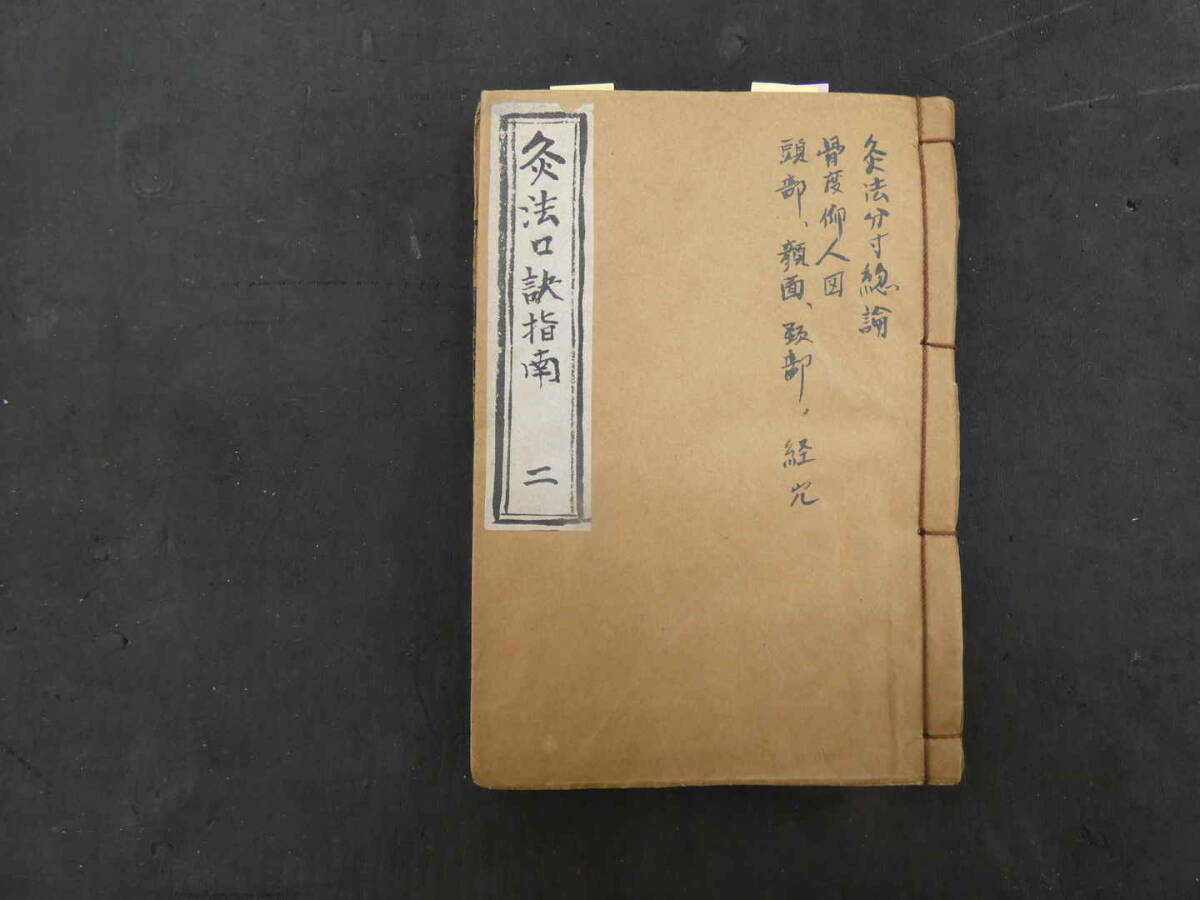 灸法分寸総論
骨度仰人図
頭部、顔面、頚部、経穴
灸法口訣指南 二